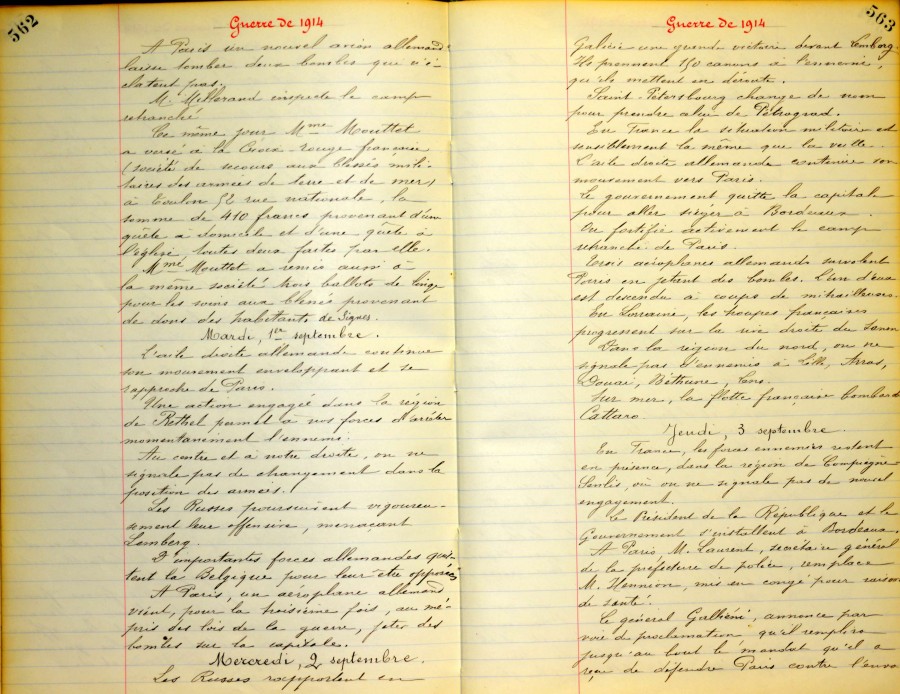 562
Guerre de 1914
A Paris un nouvel avion allemand
laisse tomber deux bombes qui n'é-
clatent pas.
M. Millerand inspecte le camp
retranché
Ce même jour Mme Mouttet
a versé à la Croix-rouge française
(société de secours aux blessés mili-
taires des armées de terre et de mer)
à Toulon 52 rue nationale, la
somme de 410 francs provenant d'une
quête à domicile et d'une quête à
l'église, toutes deux faites par elle.
Mme Mouttet a remis aussi à
la même société trois ballots de linge
pour les soins aux blessés provenant
de dons des habitants de Signes.
Mardi, 1er septembre.
L'aile droite allemande continue
son mouvement enveloppant et se
rapproche de Paris.
Une action engagée dans la région
de Rethel permet à nos forces d'arrêter
momentanément l'ennemi.
Au centre et à notre droite, on ne
signale pas de changement dans la
position des armées.
Les Russes poursuivent vigoureu-
sement leur offensive, menaçant
Lemberg.
D'importantes forces allemandes quit-
tent la Belgique pour leur être opposées
A Paris, un aéroplane allemand
vient, pour la troisième fois, au mé-
pris des lois de la guerre, jeter des
bombes sur la capitale.
Mercredi, 2 septembre.
Les Russes rapportent en
563
Guerre de 1914
Galicie une grande victoire devant Lemberg.
Ils prennent 150 canons à l'ennemi,
qu'ils mettent en déroute.
Saint-Pétersbourg change de nom
pour prendre celui de Pétrograd.
En France la situation militaire est
sensiblement la même que la veille.
L'aile droite allemande continue son
mouvement vers Paris.
Le gouvernement quitte la capitale
pour aller siéger à Bordeaux.
On fortifie activement le camp
retranché de Paris.
Trois aéroplanes allemands survolent
Paris en jetant des bombes. L'un d'eux
est descendu à coups de mitrailleuses.
En Lorraine, les troupes françaises
progressent sur la rive droite du Sanon
Dans la région du nord, on ne
signale pas d'ennemis à Lille, Arras,
Douai, Béthune, Lens.
Sur mer, la flotte française bombarde
Cattaro.
Jeudi, 3 septembre.
En France, les forces ennemies restent
en présence, dans la région de Compiègne-
Senlis, où on ne signale pas de nouvel
engagement.
Le Président de la République et le
Gouvernement s'installent à Bordeaux.
A Paris, M. Laurent, secrétaire général
de la préfecture de police, remplace
M. Hennion, mis en congé pour raison
de santé.
Le général Galliéni, annonce par
voie de proclamation, qu'il remplira
jusqu'au bout le mandat qu'il a
reçu de défendre Paris contre l'enva